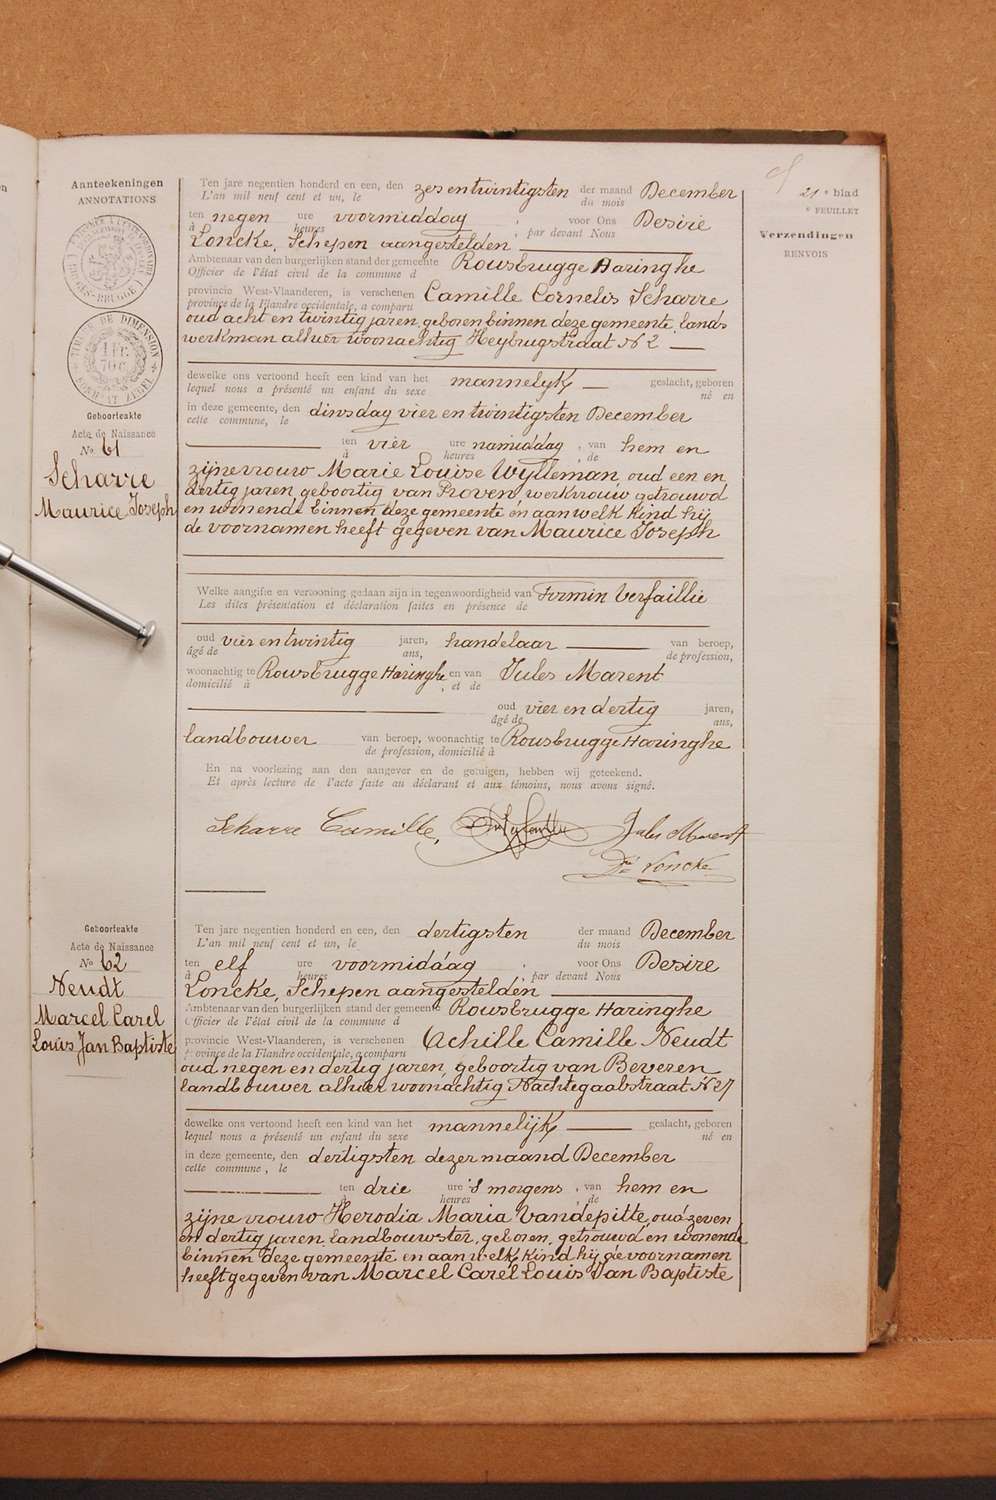 Aanteekeningen
ANNOTATIONS
21e blad
e FEUILLET
Verzendingen
RENVOIS
TIMBRE DE DIMENSION
1 FR.
Geboorteakte
Acte de Naissance
No 61
Scharre
Maurice Joseph
Ten jare negentien honderd en een, den zes en twintigsten der maand December
L'an mil neuf cent et un, le du mois
ten negen ure voormiddag ; voor Ons Desire
à heures ; par devant Nous
Loncke, Schepen aangestelden
Ambtenaar van den burgerlijken stand der gemeente Rousbrugge Haringhe
Officier de l'état civil de la commune d
provincie West-Vlaanderen, is verschenen Camille Cornelis Scharre
province de la Flandre occidentale, a comparu
oud acht en twintig jaren, geboren binnen deze gemeente, lands
werkman alhier woonachtig Heybrugstraat No 2
dewelke ons vertoond heeft een kind van het mannelijk geslacht, geboren
lequel nous a présenté un enfant du sexe né en
in deze gemeente, den dinsdag vier en twintigsten December
cette commune, le
ten vier ure namiddag , van hem en
à heures , de
zijne vrouw Marie Louise Wylleman, oud een en
dertig jaren, geboortig van Proven, werkvrouw, getrouwd
en wonende binnen deze gemeente en aan welk kind hij
de voornamen heeft gegeven van Maurice Joseph
Welke aangifte en vertooning gedaan zijn in tegenwoordigheid van Firmin Verfaillie
Les dites présentation et déclaration faites en présence de
oud vier en twintig jaren, handelaar van beroep,
âgé de ans, de profession,
woonachtig te Rousbrugge Haringhe en van Jules Marent
domicilié à , et de
oud vier en dertig jaren,
âgé de ans,
landbouwer van beroep, woonachtig te Rousbrugge Haringhe
de profession, domicilié à
En na voorlezing aan den aangever en de getuigen, hebben wij geteekend.
Et après lecture de l'acte faite au déclarant et aux témoins, nous avons signé.
Scharre Camille, Jules Marent
Dre Loncke
Geboorteakte
Acte de Naissance
No 62
Neudt
Marcel Carel
Louis Jan Baptiste
Ten jare negentien honderd en een, den dertigsten der maand December
L'an mil neuf cent et un, le du mois
ten elf ure voormiddag ; voor Ons Desire
à heures ; par devant Nous
Loncke, Schepen aangestelden
Ambtenaar van den burgerlijken stand der gemeente Rousbrugge Haringhe
Officier de l'état civil de la commune d
provincie West-Vlaanderen, is verschenen Achille Camille Neudt
province de la Flandre occidentale, a comparu
oud negen en dertig jaren, geboortig van Beveren
landbouwer alhier woonachtig Nachtegaalstraat No 27
dewelke ons vertoond heeft een kind van het mannelijk geslacht, geboren
lequel nous a présenté un enfant du sexe né en
in deze gemeente, den dertigsten dezer maand December
cette commune, le
ten drie ure 's morgens , van hem en
à heures , de
zijne vrouw Herodia Maria Vandepitte, oud zeven
en dertig jaren, landbouwster, geboren, getrouwd en wonende
binnen deze gemeente en aan welk kind hij de voornamen
heeft gegeven van Marcel Carel Louis Jan Baptiste